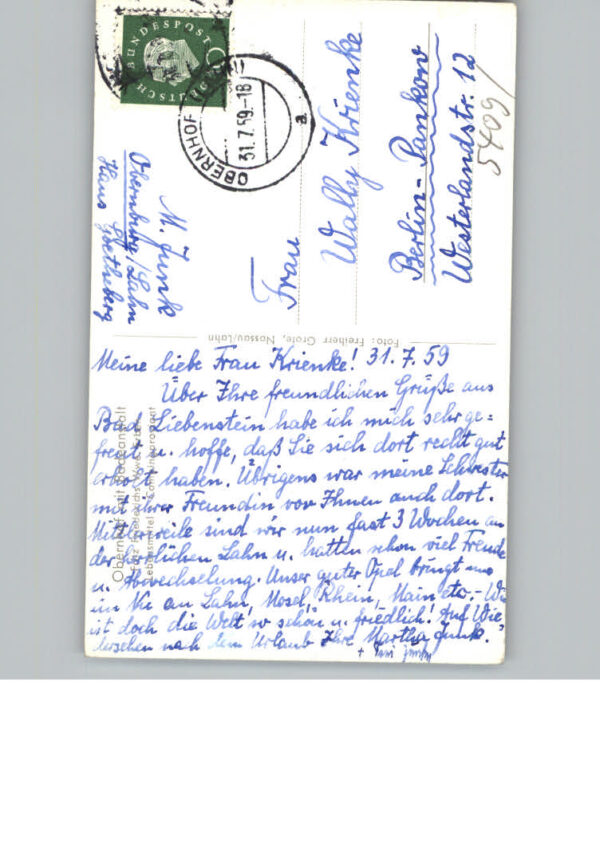 DEUTSCHE BUNDESPOST
OBERNHOF (LAHN)
31.7.59-18
a
M. Junk
Obernburg/Lahn
Haus Goetheberg
Frau
Wally Krienke
Berlin-Pankow
Westerlandstr. 12
5409
Foto: Freiherr Grote, Nassau/Lahn
Obernhof mit Badeanstalt
Lebensmittel - Campingproviant
Meine liebe Frau Krienke! 31.7.59
Über Ihre freundlichen Grüße aus
Bad Liebenstein habe ich mich sehr ge=
freut u. hoffe, daß Sie sich dort recht gut
erholt haben. Übrigens war meine Schwester
mit ihrer Freundin vor Ihnen auch dort.
Mittlerweile sind wir nun fast 3 Wochen an
der herrlichen Lahn u. hatten schon viel Freude
u. Abwechselung. Unser guter Opel bringt uns
im Nu an Lahn, Mosel, Rhein, Main etc. - Wie
ist doch die Welt so schön u. friedlich! Auf Wie=
dersehen nach dem Urlaub Ihre Martha Junk.